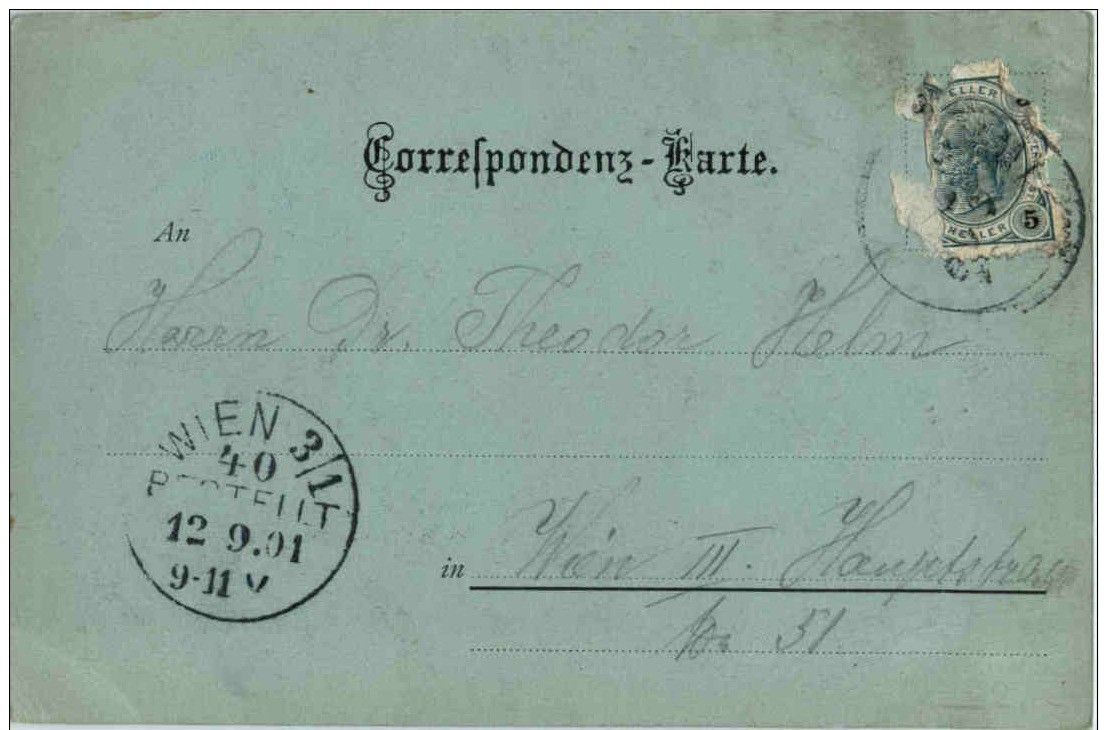 Correspondenz-Karte.
HELLER
5
HELLER
An
Herrn Dr. Theodor Helm
WIEN 3/1
40
BESTELLT
12 9.01
9-11 V
in Wien III. Hauptstrasse
No 51